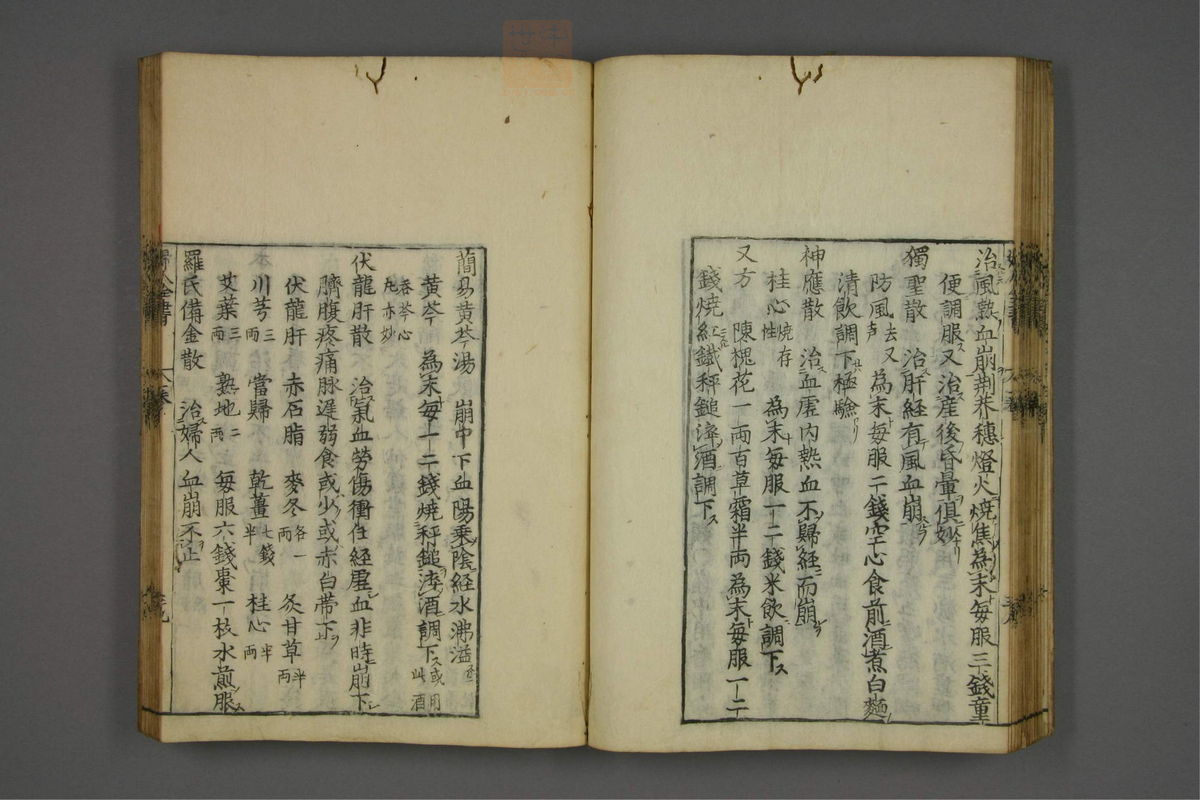 治風熱血崩荆芥穗燈火燒焦為末每服三錢童
便調服又治產後昏暈俱妙
獨聖散 治肝經有風血崩
防風去叉芦 為末每服二錢空心食前酒煮白麵
清飲調下極驗
神應散 治血虛內熱血不歸經而崩
桂心燒存性 為末每服一二錢米飲調下
又方 陳槐花一兩百草霜半兩為末每服一二
錢燒紅鐵秤鎚淬酒調下
簡易黃芩湯 崩中下血陽乗陰經水沸溢
黃芩 為末每一二錢燒秤鎚淬酒調下或用此酒
吞芩心丸亦妙
伏龍肝散 治氣血勞傷衝任經虛血非時崩下
臍腹疼痛脉遲弱食或少或赤白帶下
伏龍肝 赤石脂 麥冬各一兩 炙甘草半兩
川芎三兩 當歸 乾薑七錢半 桂心半兩
艾葉三兩 熟地二兩 每服六錢棗一枚水煎服
羅氏備金散 治婦人血崩不止